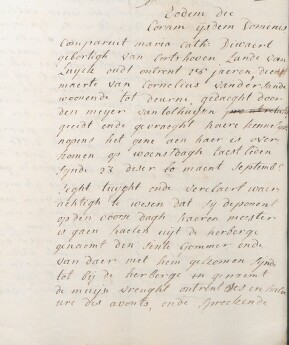 Eodem die
Coram ijsdem Dominis
Compareert maria Cath:
geboortigh van Lande van
Luijck oudt ontrent 25 jaeren, dienst
maerte van Cornelius vander
woonende tot deurne, gedaeght door
den meijer van
geeidt ende gevraeght haere kennisse
nopens het gene aen haer is over
komen op woensdagh laest leden
sijnde 23 deser 
Seght tuijght ende verclaert waer
achtigh te wesen dat sij deponent
op den voors: dagh haeren meester
is gaen haelen uijt de herberge
genaemt den Sinte Gommer ende
van daer met hem gekomen sijnde
tot bij de herberge genaemt
de ontrent ses
ure des avonts, ende spreekende